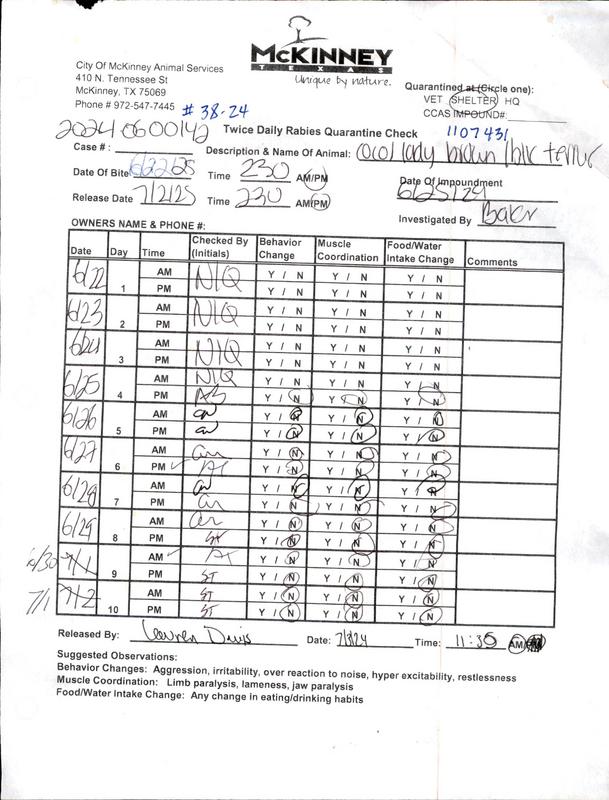 McKINNEY
TEXAS
Unique by nature.
City Of McKinney Animal Services
410 N. Tennessee St
McKinney, TX 75069
Phone # 972-547-7445 # 38-24
Quarantined at (Circle one):
VET SHELTER HQ
CCAS IMPOUND#:
1107431
20240600142
Twice Daily Rabies Quarantine Check
Case # : Description & Name Of Animal: lady brown / blk
Date Of Bite 6/22/25 Time 230 AM/PM
Date Of Impoundment
Release Date 7/2/25 Time 230 AM/PM
Investigated By Baker
OWNERS NAME & PHONE #:
Date Day Time Checked By (Initials) Behavior Change Muscle Coordination Food/Water Intake Change Comments
6/22 1 AM NIQ Y / N Y / N Y / N
PM Y / N Y / N Y / N
6/23 2 AM NIQ Y / N Y / N Y / N
PM Y / N Y / N Y / N
6/24 3 AM NIQ Y / N Y / N Y / N
PM Y / N Y / N Y / N
6/25 4 AM NIQ Y / N Y / N Y / N
PM Y / N Y / N Y / N
6/26 5 AM Y / N Y / N Y / N
PM Y / N Y / N Y / N
6/27 6 AM Y / N Y / N Y / N
PM Y / N Y / N Y / N
6/28 7 AM Y / N Y / N Y / N
PM Y / N Y / N Y / N
6/29 8 AM Y / N Y / N Y / N
PM Y / N Y / N Y / N
6/30 7/1 9 AM Y / N Y / N Y / N
PM ST Y / N Y / N Y / N
7/1 7/2 10 AM ST Y / N Y / N Y / N
PM ST Y / N Y / N Y / N
Released By: Lauren Davis Date: Time: 11:35 AM/
Suggested Observations:
Behavior Changes: Aggression, irritability, over reaction to noise, hyper excitability, restlessness
Muscle Coordination: Limb paralysis, lameness, jaw paralysis
Food/Water Intake Change: Any change in eating/drinking habits